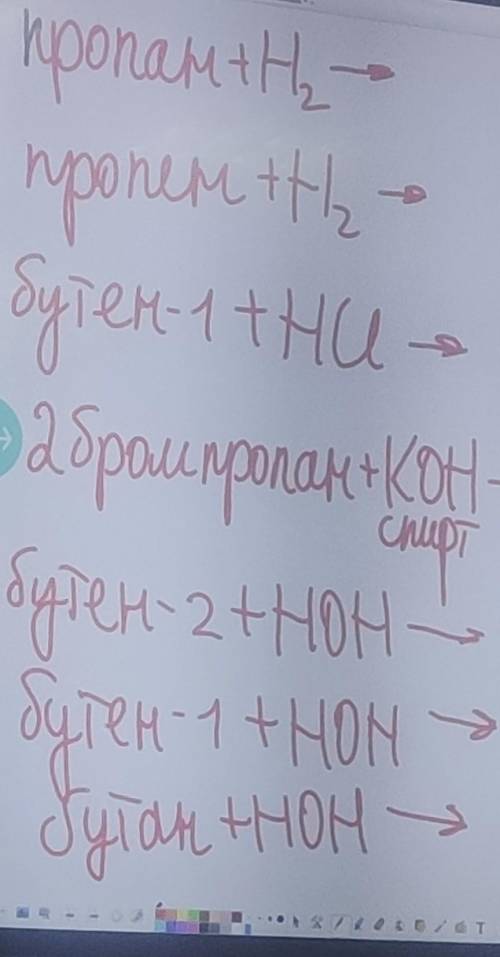 пропан + H₂ →
пропен + H₂ →
бутен-1 + HCl →
2 бромпропан + KOH -
спирт
бутен-2 + HOH →
бутен-1 + HOH →
бутан + HOH →